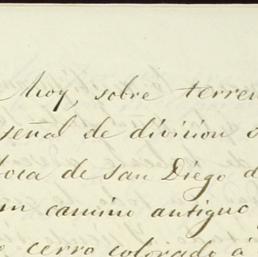 hoy, sobre terren
señal de division
boca de san Diego d
un camino antiguo
cerro colorado á